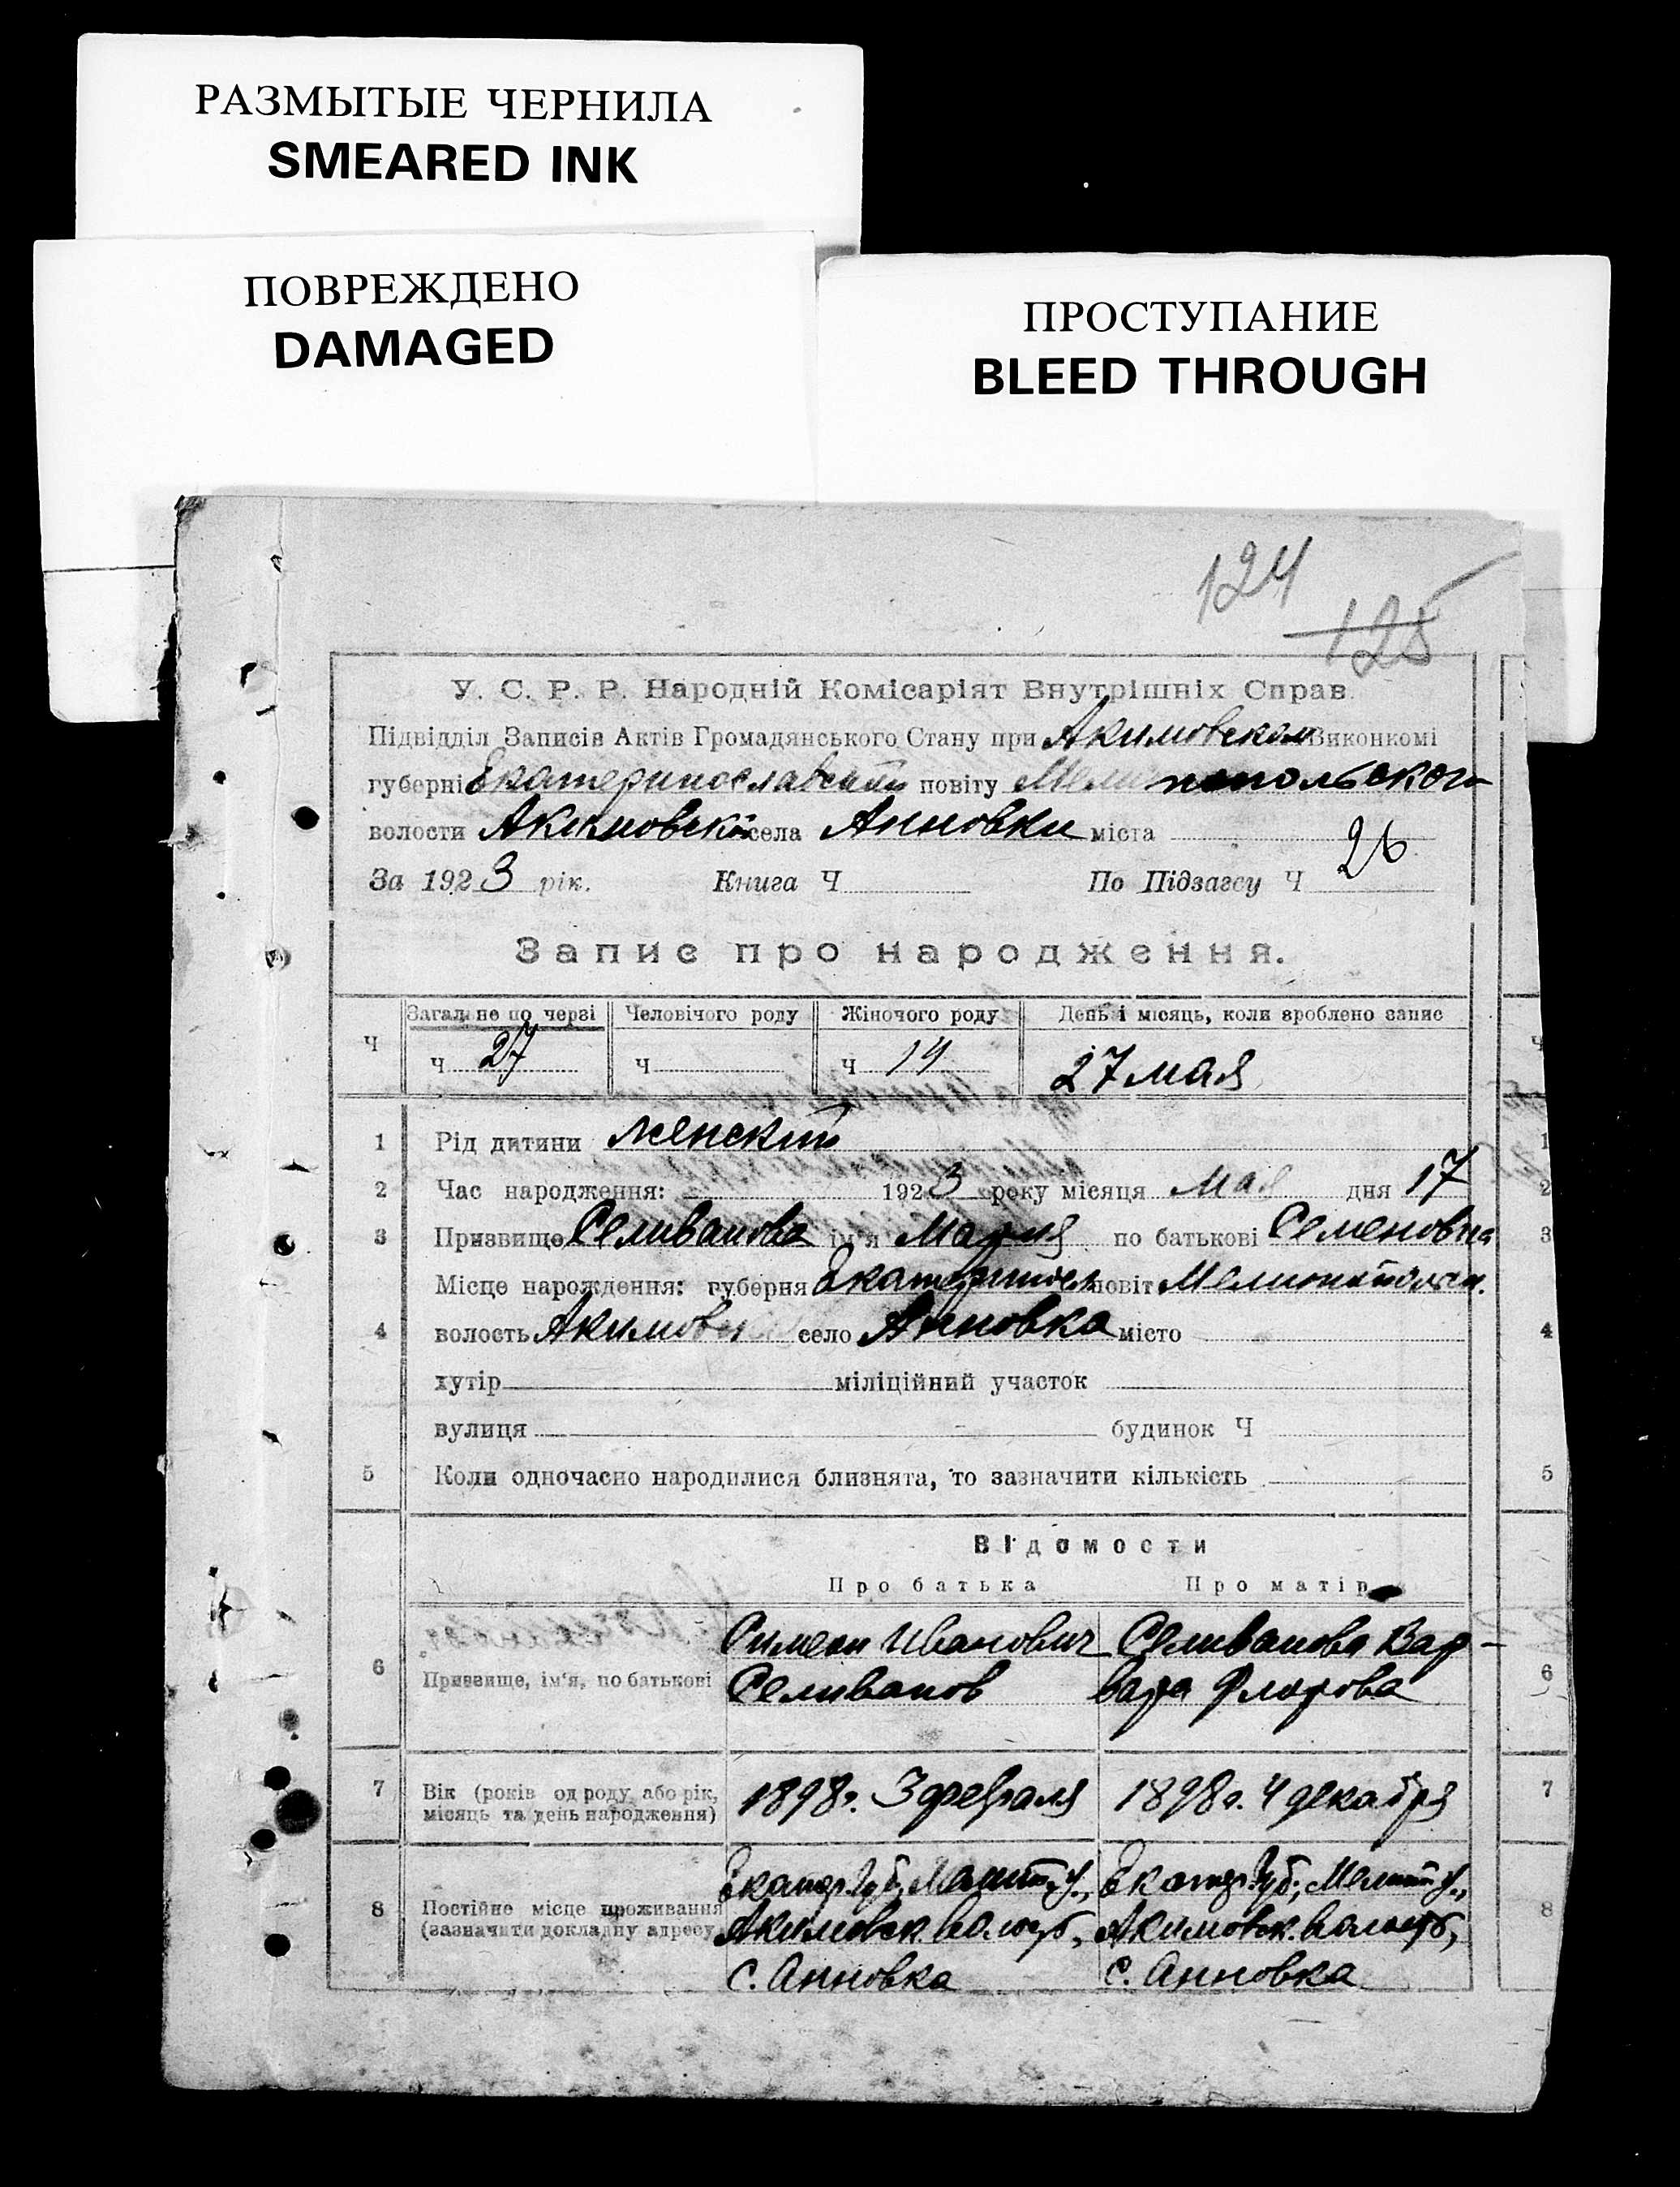 РАЗМЫТЫЕ ЧЕРНИЛА
SMEARED INK
ПОВРЕЖДЕНО
DAMAGED
ПРОСТУПАНИЕ
BLEED THROUGH
124
125
У. С. Р. Р. Народній Комісаріят Внутрішніх Справ.
Підвідділ Записів Актів Громадянського Стану при Акимовском Виконкомі
губерні Екатеринославский повіту Мелитопольского
волости Акимовской села Анновки міста
За 1923 рік. Книга Ч По Підзагсу Ч 26
Запис про народження.
Ч Загальне по черзі Человічого роду Жіночого роду День і місяць, коли зроблено запис
Ч 27 Ч Ч 14 27 мая
1 Рід дитини женский 1
2 Час народження: 1923 року місяця Мая дня 17 2
3 Призвище Селиванова ім'я Мария по батькові Семеновна 3
Місце нарождення: губерня Екатериносл повіт Мелитопольск.
4 волость Акимовская село Анновка місто 4
хутір міліційний участок
вулиця будинок Ч
5 Коли одночасно народилися близнята, то зазначити кількість 5
Відомости
Про батька Про матір
Симеон Иванович Селиванова Вар-
6 Призвище, ім'я, по батькові Селиванов вара Флорова 6
7 Вік (років од роду або рік, 1898г. 3 февраля 1898г. 4 декабря 7
місяць та день народження)
Екатер. губ., Мелит. у., Екатер. губ., Мелит. у.,
8 Постійне місце проживання Акимовск. волость, Акимовск. волость, 8
(зазначити докладну адресу)
с. Анновка с. Анновка